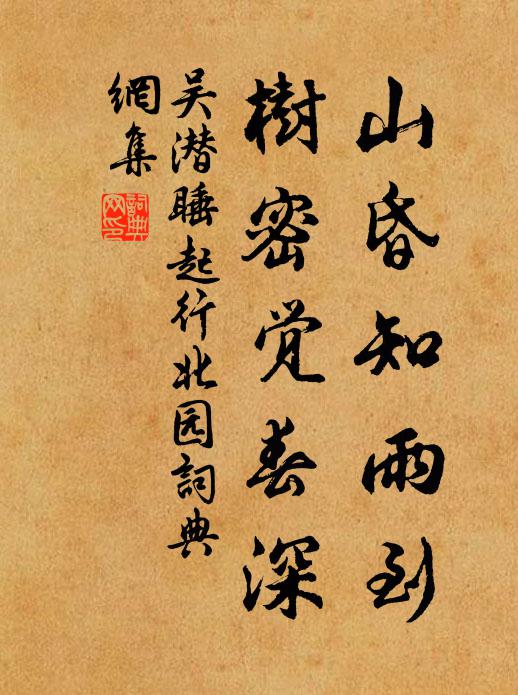 山昏知雨到
樹密觉春深
吴潜睡起行北园詞典
網集
詞典
网印